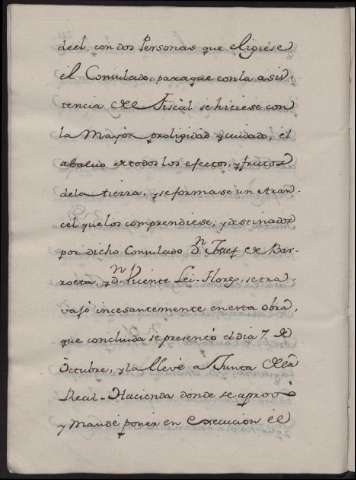 de el, con dos Personas que eligiese
el Consulado, para que con la asis
tencia del Fiscal se hiciese con
la Mayor proligidad y cuidado, el
abaluo de todos los efectos, y frutos
de la tierra, y se formase un Aran-
cel que los comprendiese, y destinados
por dicho Consulado Dn. Josef de Bar-
roeta, y Dn. Vicente Lei-Flores, se tra
vajó incesantemente en esta obra,
que concluida se presentó el dia 7. de
Octubre, y la llevé a Junta de la
Real-Hacienda donde se aprovó
y Mandé poner en execucion el